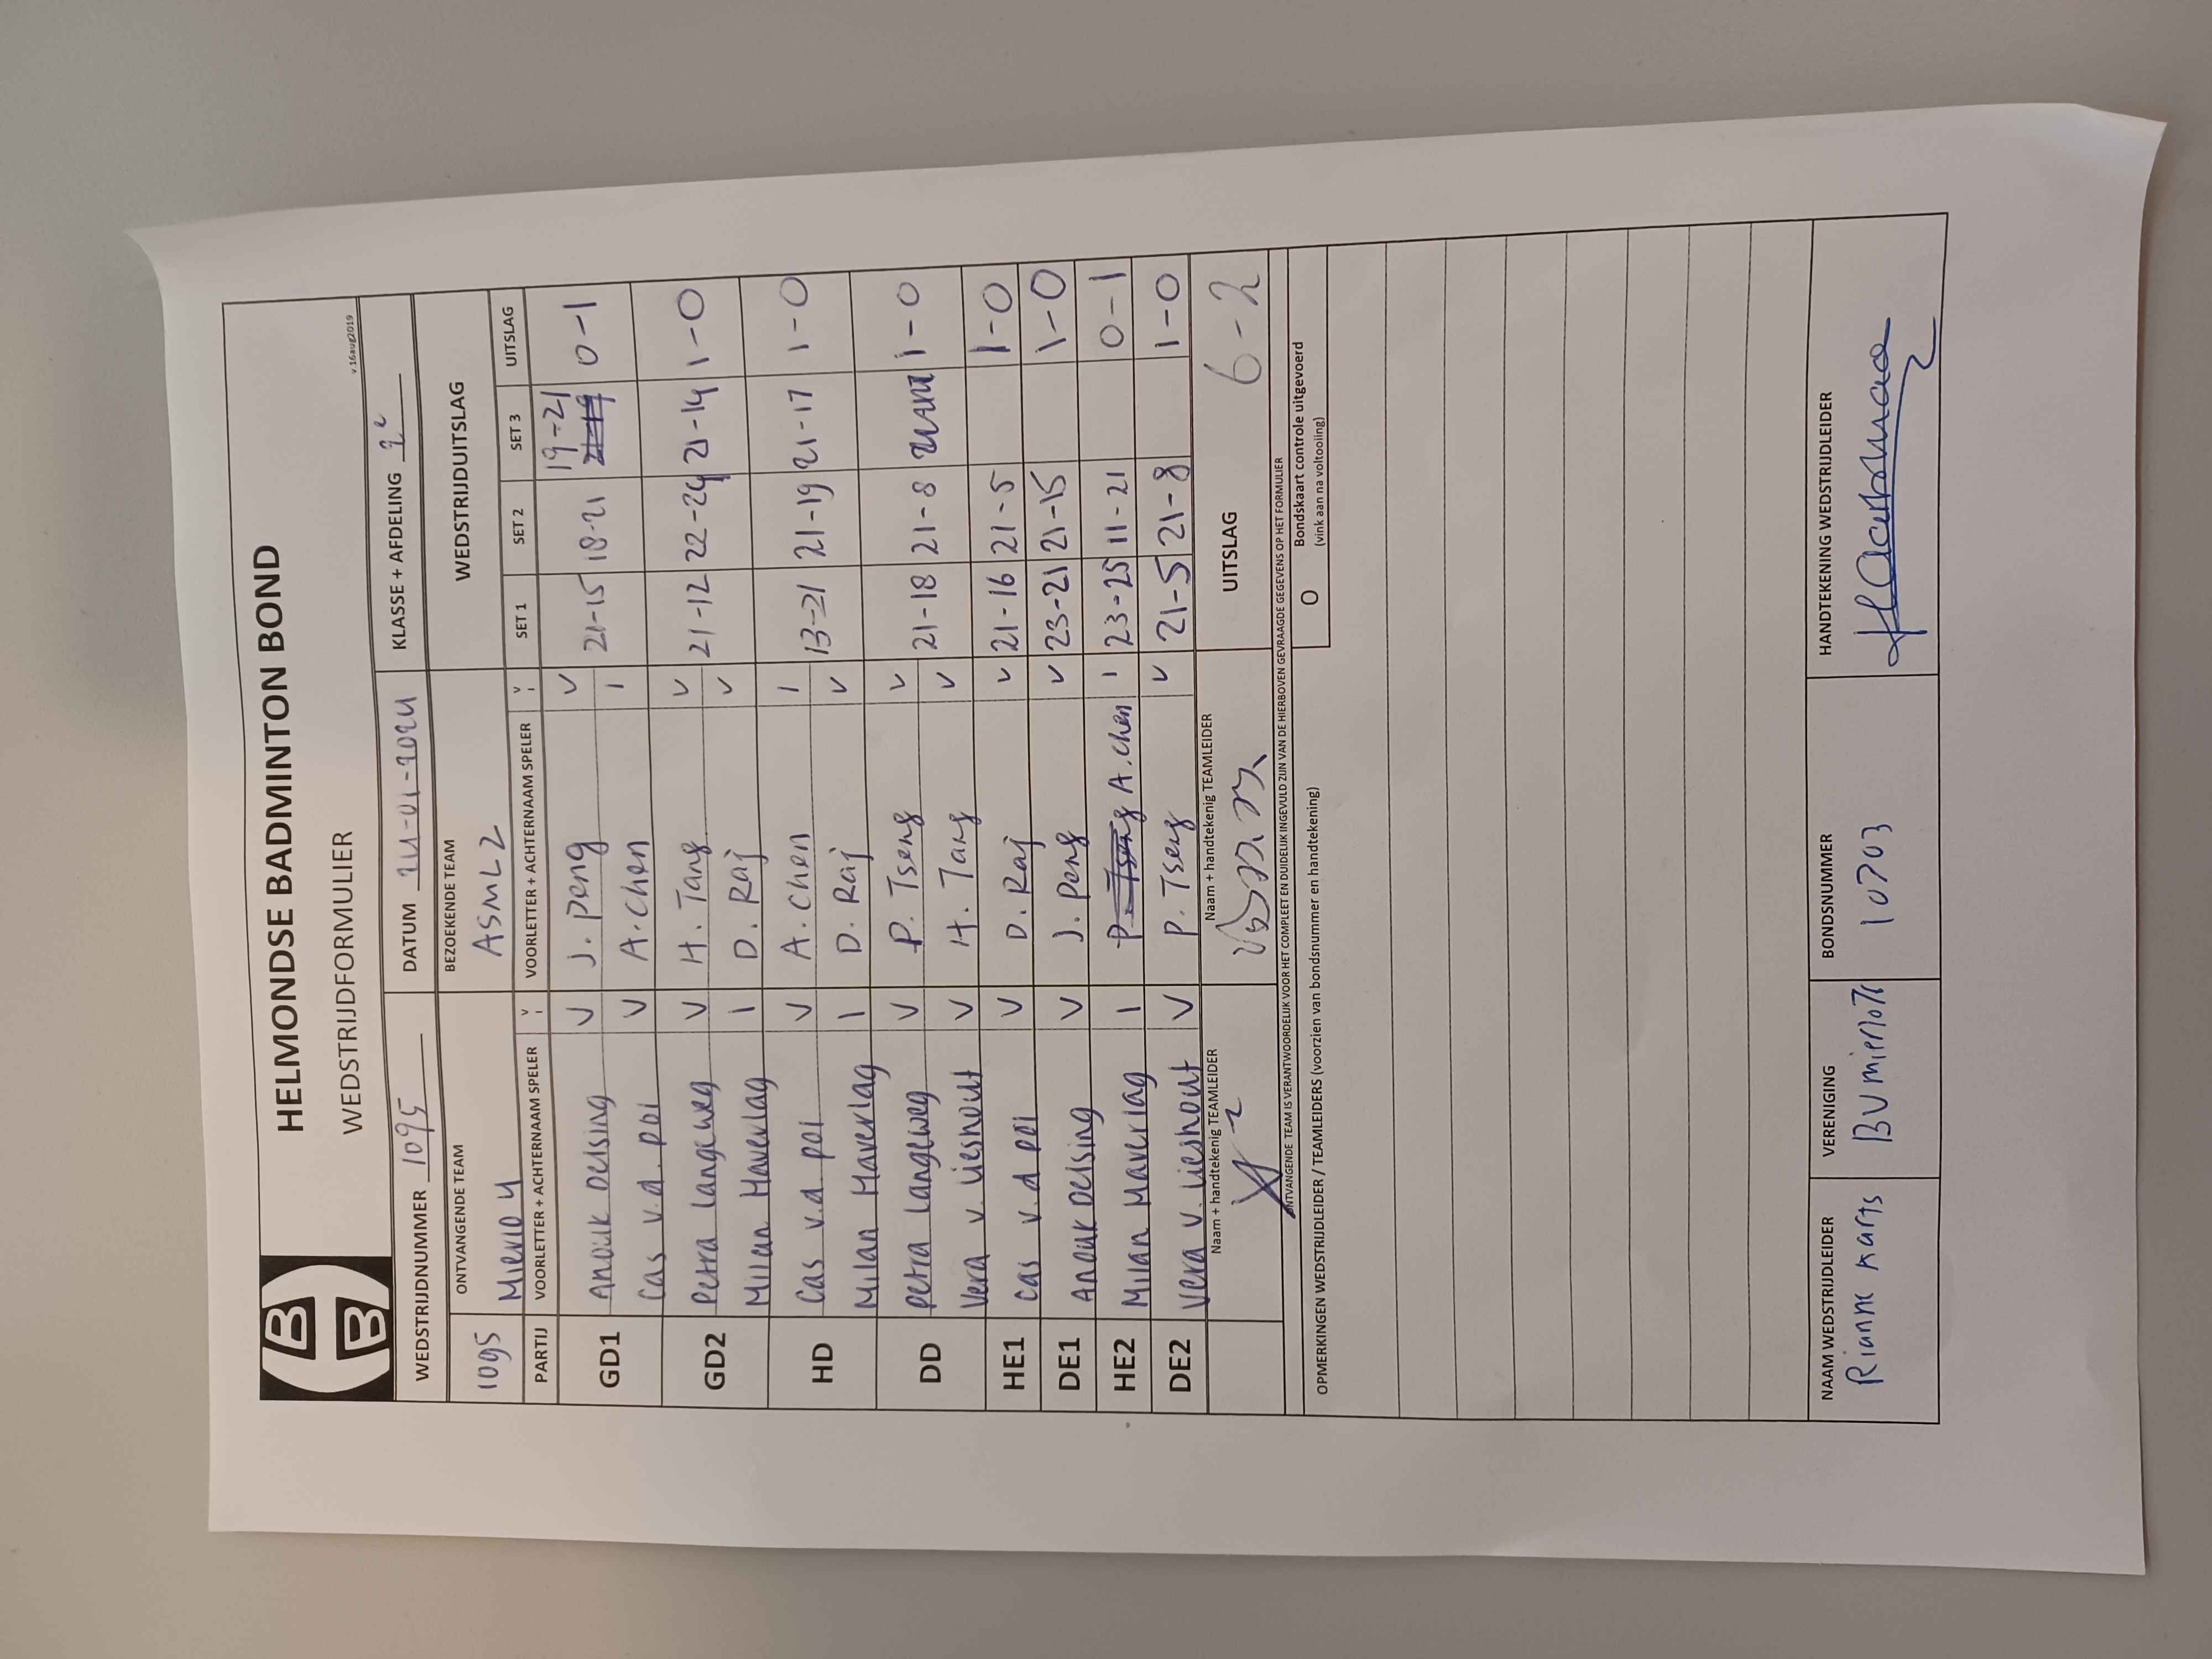 HELMONDSE BADMINTON BOND
WEDSTRIJDFORMULIER
v.16aug2019
WEDSTRIJDNUMMER 1095 DATUM 24-01-2024 KLASSE + AFDELING 2e
1095 ONTVANGENDE TEAM BEZOEKENDE TEAM WEDSTRIJDUITSLAG
Mierlo 4 ASML 2
PARTIJ VOORLETTER + ACHTERNAAM SPELER V I VOORLETTER + ACHTERNAAM SPELER V I SET 1 SET 2 SET 3 UITSLAG
GD1 Anouk Delsing V J. Peng V 21-15 18-21 19-21 0-1
Cas v.d. Pol V A. Chen I
GD2 Petra Langeweg V H. Tang V 21-12 22-24 21-14 1-0
Milan Haverlag I D. Raj V
HD Cas v.d. Pol V A. Chen I 13-21 21-19 21-17 1-0
Milan Haverlag I D. Raj V
DD Petra Langeweg V P. Tseng V 21-18 21-8 1-0
Vera v. Lieshout V H. Tang V
HE1 Cas v.d Pol V D. Raj V 21-16 21-5 1-0
DE1 Anouk Delsing V J. Peng V 23-21 21-15 1-0
HE2 Milan Haverlag I P. Tseng A. Chen I 23-25 11-21 0-1
DE2 Vera v. Lieshout V P. Tseng V 21-5 21-8 1-0
Naam + handtekenig TEAMLEIDER Naam + handtekenig TEAMLEIDER UITSLAG 6-2
ONTVANGENDE TEAM IS VERANTWOORDELIJK VOOR HET COMPLEET EN DUIDELIJK INGEVULD ZIJN VAN DE HIERBOVEN GEVRAAGDE GEGEVENS OP HET FORMULIER
OPMERKINGEN WEDSTRIJDLEIDER / TEAMLEIDERS (voorzien van bondsnummer en handtekening) O Bondskaart controle uitgevoerd
(vink aan na voltooiing)
NAAM WEDSTRIJDLEIDER VERENIGING BONDSNUMMER HANDTEKENING WEDSTRIJDLEIDER
Rianne BV Mierlo 10703